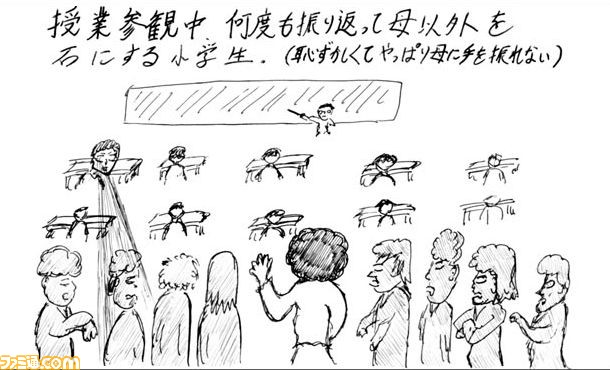 授業参観中、何度も振り返って母以外を
石にする小学生.(恥ずかしくてやっぱり母に手を振れない)
ファミ通.com